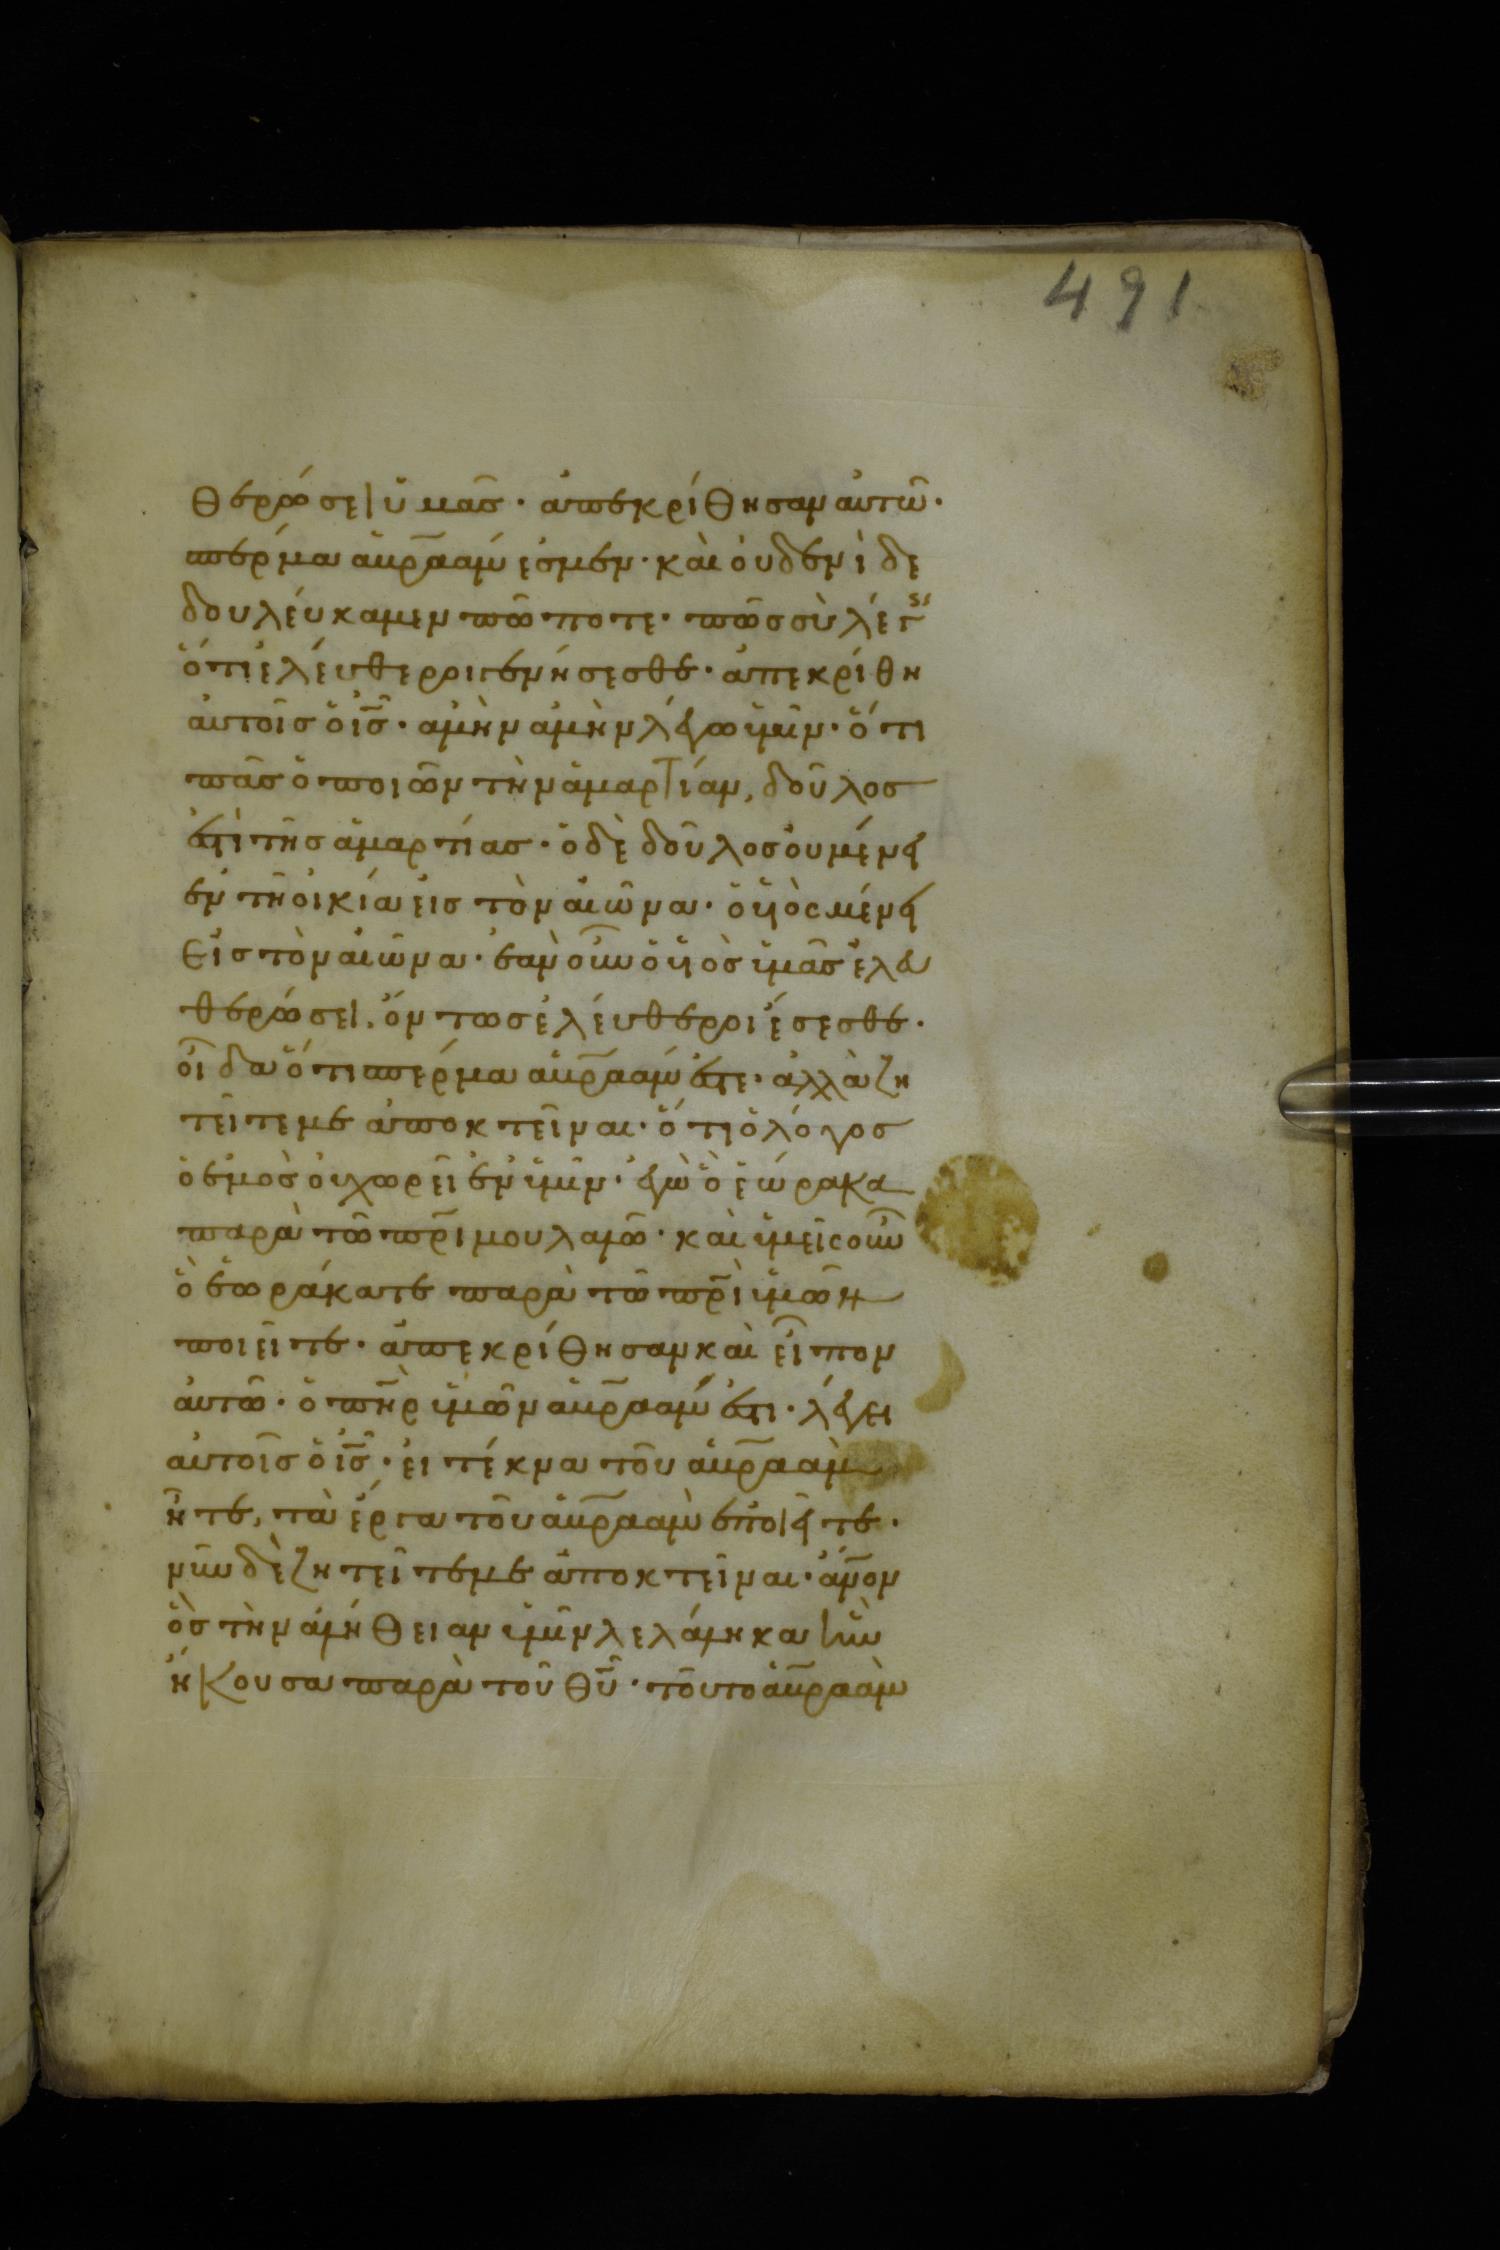 491
θερώσει ὑμᾶσ· ἀπεκρίθησαν αὐτῶ·
σπέρμα ἀβρααμ ἐσμέν· καὶ ὀυδενὶ δε
δουλέυκαμεν πώποτε· πῶσ σὺ λέγεισ
ὅτι ἐλέυθεροι γενήσεσθε· ἀπεκρίθη
ἀυτοῖσ ὁ ἰ̅σ̅· ἀμὴν ἀμὴν λέγω ὑμῖν· ὅτι
πᾶσ ὁ ποιῶν τὴν ἁμαρτίαν, δοῦλοσ
ἐστὶ τῆσ ἁμαρτίασ· ὁ δὲ δοῦλοσ ὀυ μένει
ἐν τῆ οἰκία εἰσ τὸν αἰῶνα· ὁ ὑιὸς μένει
Εἰσ τὸν αἰῶνα· ἐὰν οὖν ὁ ὑιὸσ ὑμᾶσ ἐλευ
θερώσει, ὄντωσ ἐλέυθεροι ἔσεσθε·
οἶδα ὅτι σπέρμα ἀβρααμ ἐστε· ἀλλὰ ζη
τεῖτε με ἀποκτεῖναι· ὅτι ὁ λόγοσ
ὁ ἐμὸσ ὀυ χωρεῖ ἐν ὑμῖν· ἐγὼ ὃ ἑώρακα
παρὰ τῶ π̅ρ̅ι μου λαλῶ· καὶ ὑμεῖς οὖν
ὃ ἑωράκατε παρὰ τῶ π̅ρ̅ὶ ὑμῶν
ποιεῖτε· ἀπεκρίθησαν καὶ εἶπον
ἀυτῶ· ὁ π̅η̅ρ ἡμῶν ἀβρααμ ἐστι· λέγει
ἀυτοῖσ ὁ ἰ̅σ̅· εἰ τέκνα τοῦ ἀβρααμ
ἦτε, τὰ ἔργα τοῦ ἀβρααμ ἐποιεῖτε·
νῦν δὲ ζητεῖτε με ἀποκτεῖναι· ἄν̅ο̅ν
ὃσ τὴν ἀλήθειαν ὑμῖν λελάληκα ἣν
ἤκουσα παρὰ τοῦ θ̅υ̅· τοῦτο ἀβρααμ